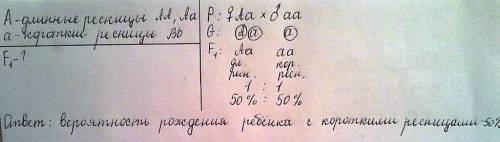 А-длинные ресницы АА, Аа
а-короткие ресницы Вb
F₁-?
P: ♀Аа × ♂аа
G: А а а
F₁: Аа аа
дл. кор.
ресн. ресн.
1 : 1
50% : 50%
Ответ: вероятность рождения ребёнка с короткими ресницами-50%